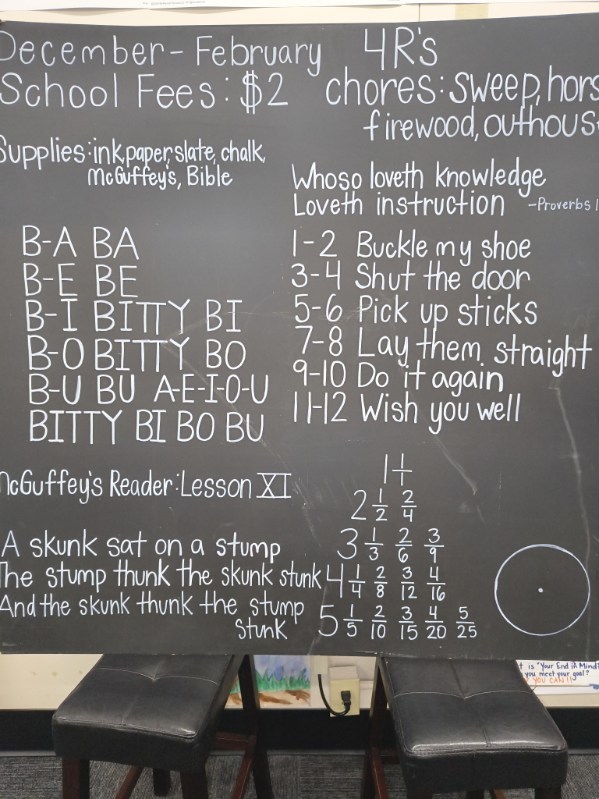 December - February
School Fees: $2
4R's
chores: sweep, hors
firewood, outhous
Supplies: ink, paper, slate, chalk,
McGuffey's, Bible
Whoso loveth knowledge
Loveth instruction -Proverbs 1
B-A BA
B-E BE
B-I BITTY BI
B-O BITTY BO
B-U BU A-E-I-O-U
BITTY BI BO BU
1-2 Buckle my shoe
3-4 Shut the door
5-6 Pick up sticks
7-8 Lay them straight
9-10 Do it again
11-12 Wish you well
McGuffey's Reader: Lesson XI
A skunk sat on a stump
The stump thunk the skunk stunk
And the skunk thunk the stump
stunk
1 1/1
2 1/2 2/4
3 1/3 2/6 3/9
4 1/4 2/8 3/12 4/16
5 1/5 2/10 3/15 4/20 5/25
t is "Your End iA Mind?
you meet your goal?
YOU CAN!!